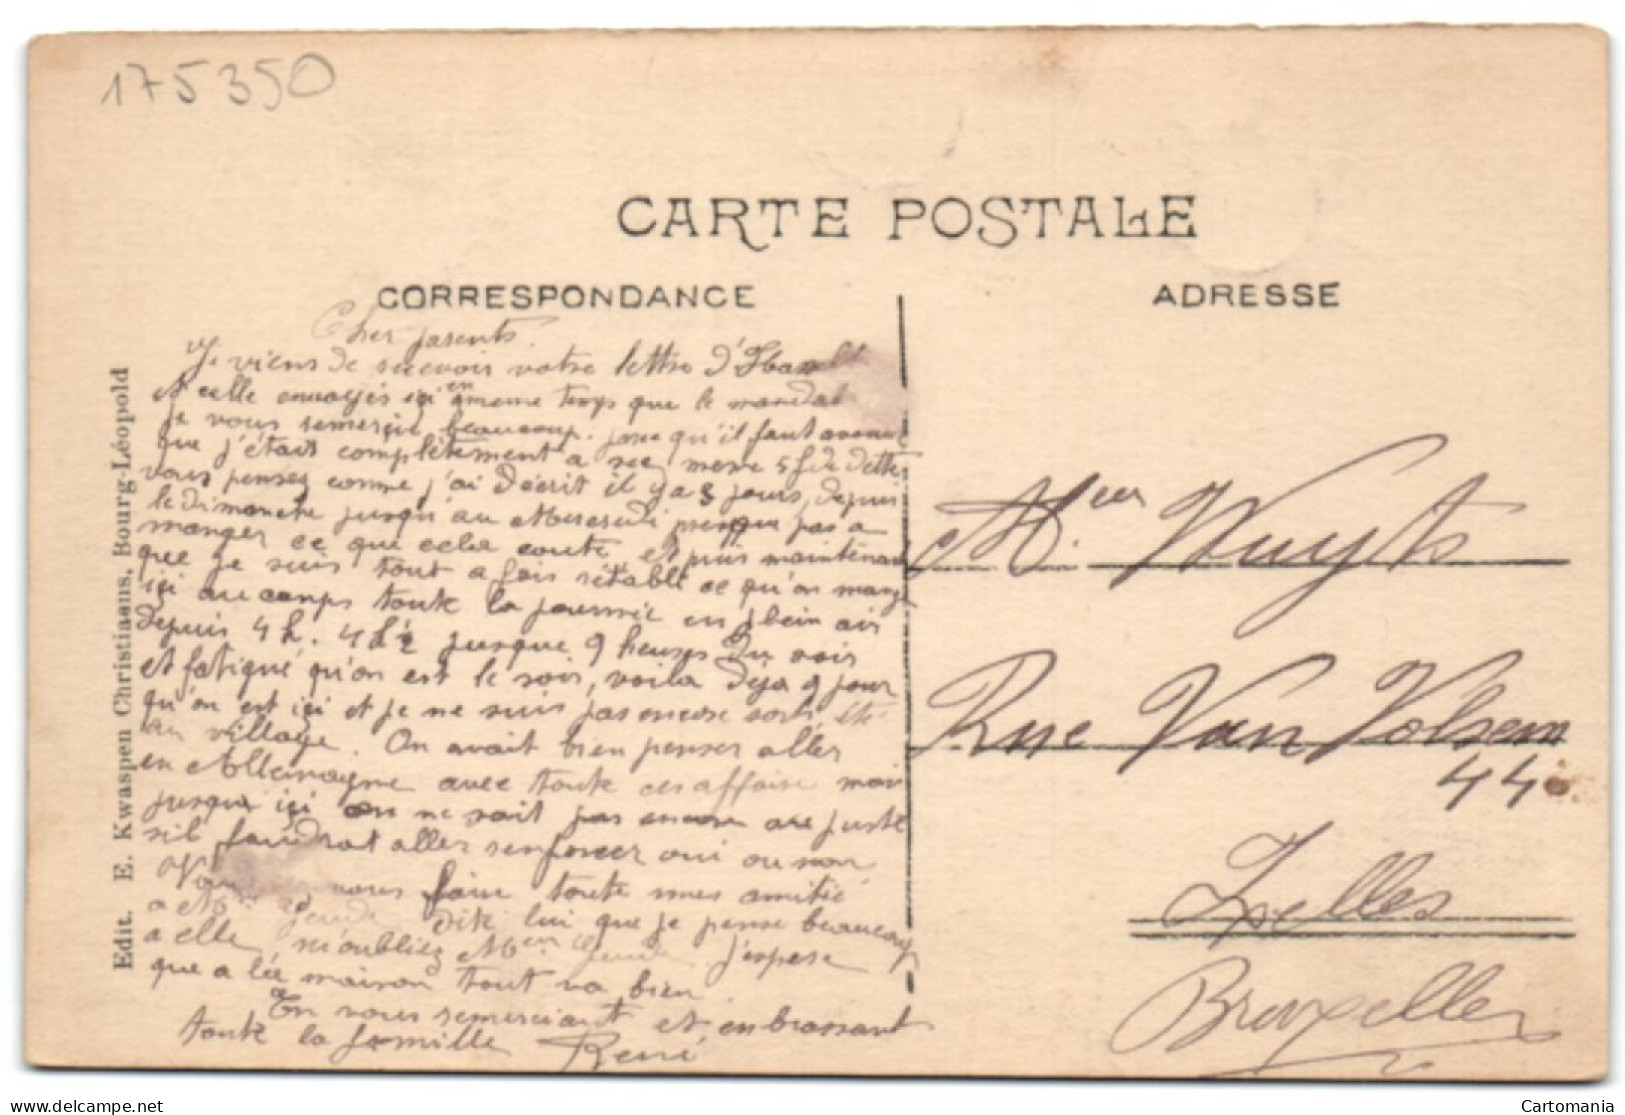 175350
CARTE POSTALE
CORRESPONDANCE
ADRESSE
Edit. E. Kwaspen Christiaens, Bourg-Léopold
Cher parents.
Je viens de recevoir votre lettre d'
et celle envoyés ici en meme temps que le mandat
je vous remercie beaucoup. parce qu'il faut avouer
que j'étais complètement a sec, meme 5 f de dette
vous pensez comme j'ai décrit il y a 8 jours, depuis
le dimanche jusqu'au Mercredi presque pas a
manger ce que cela coute, et puis maintenant
que je suis tout a fais rétablit ce qu'on mange
içi au camps toute la journée en plein air
depuis 4 h. 4 1/2 jusque 9 heures du soir
et fatigué qu'on est le soir, voila deja 9 jour
qu'on est içi et je ne suis pas encore sorti
au village. On avait bien penser aller
en Allemagne avec toute ces affaire mais
jusqua içi on ne sait pas encore au juste
s'il faudrat aller renforcer oui ou non
vous faire toute mes amitié
a dite lui que je pense beaucoup
a elle, n'oubliez j'espère
que a la maison tout va bien
En vous remerciant et embrassant
toute la famille René
Mr. Wuyts
Rue Van Volsem
44
Ixelles
Bruxelles
Cartomania
delcampe.net